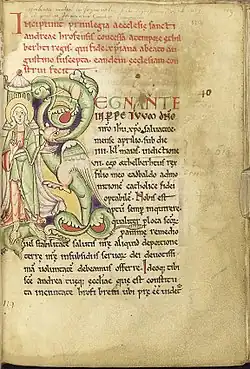 Incipiunt privilegia æcclesię sancti
andreæ hrofensis concessa a tempore ethil
berhti regis, qui fide xpiana a beato au
gustino suscepta, eandem ecclesiam con
strui fecit.
REGNANTE
in ppetuum dño
nr̃o ihu xpo salvatore.
mense aprilio. sub die
iiii. kl' maias. indictione
vii. ego æthelberhtus rex
filio meo eadbaldo ad mo
nitionē catholicę fidei
optabilem. Nobis est
aptū semp inquirere
qualiter p loca scōr
p animę remedio
vel stabilitate salutis nr̃ę aliquid de portione
terrę nr̃ę in subsidiis servor̃ dei devotissi
ma voluntate debeamus offerre. Ideoq; tibi
sc̃e andrea tuęq; ęcclesię quę est constitu
ta in civitate hrofi brevi ubi